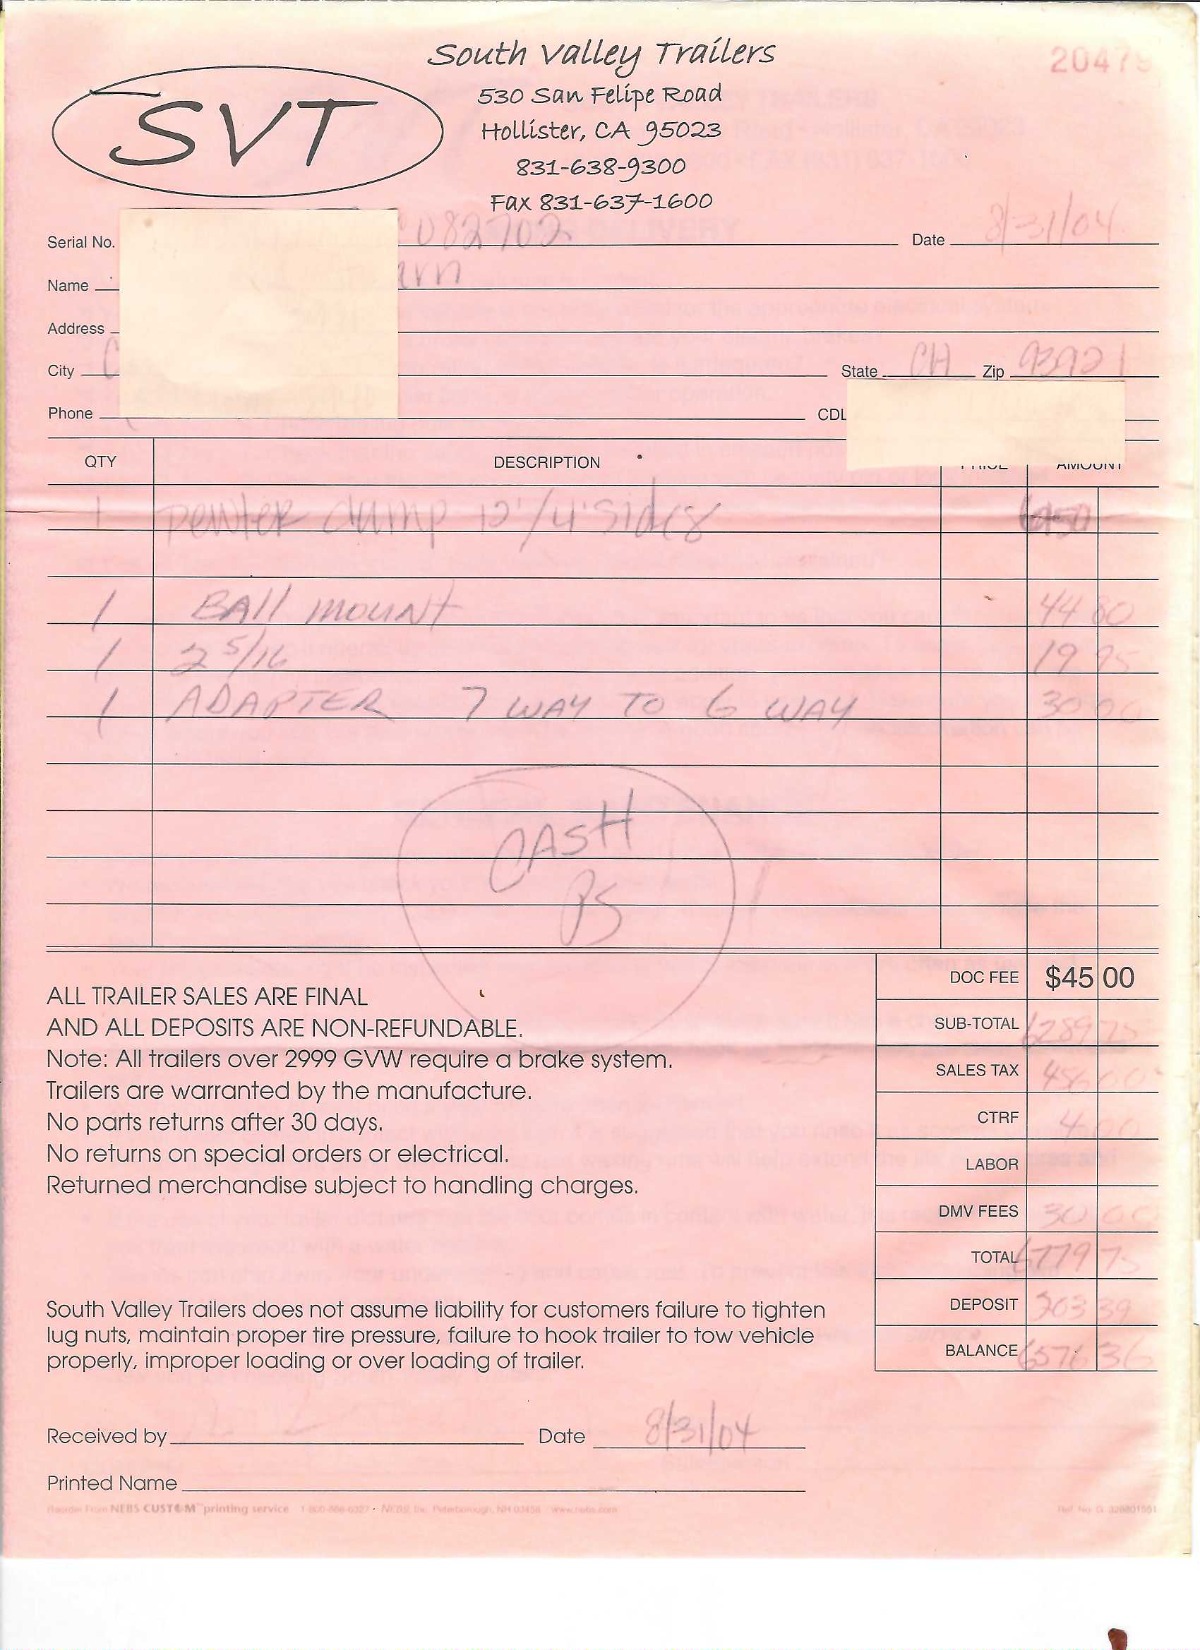 South Valley Trailers
20479
SVT
530 San Felipe Road
Hollister, CA 95023
831-638-9300
Fax 831-637-1600
Serial No. 082702 Date 8/31/04
Name
Address
City C State CA Zip 93921
Phone CDL
QTY DESCRIPTION PRICE AMOUNT
1 pewter dump 12'/4' sides
1 BAll MOUNT 44 80
1 2 5/16 19 95
1 ADAPTER 7 WAY TO 6 WAY 30 00
CASH
PS
DOC FEE $45 00
ALL TRAILER SALES ARE FINAL
AND ALL DEPOSITS ARE NON-REFUNDABLE.
SUB-TOTAL 6289 75
Note: All trailers over 2999 GVW require a brake system.
SALES TAX 456 00
Trailers are warranted by the manufacture.
No parts returns after 30 days.
CTRF 4 00
No returns on special orders or electrical.
LABOR
Returned merchandise subject to handling charges.
DMV FEES 30 00
TOTAL 6779 75
South Valley Trailers does not assume liability for customers failure to tighten
DEPOSIT 203 39
lug nuts, maintain proper tire pressure, failure to hook trailer to tow vehicle
BALANCE 6576 36
properly, improper loading or over loading of trailer.
Received by Date 8/31/04
Printed Name
Reorder From NEBS CUSTOM printing service